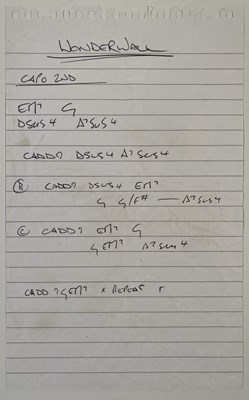 WONDERWALL
CAPO 2ND
EM7 G
DSUS4 A7SUS4
CADD9 DSUS4 A7SUS4
Ⓑ CADD9 DSUS4 EM7
G G/F# — A7SUS4
Ⓒ CADD9 EM7 G
G EM7 A7SUS4
CADD9 G EM7 X REPEAT